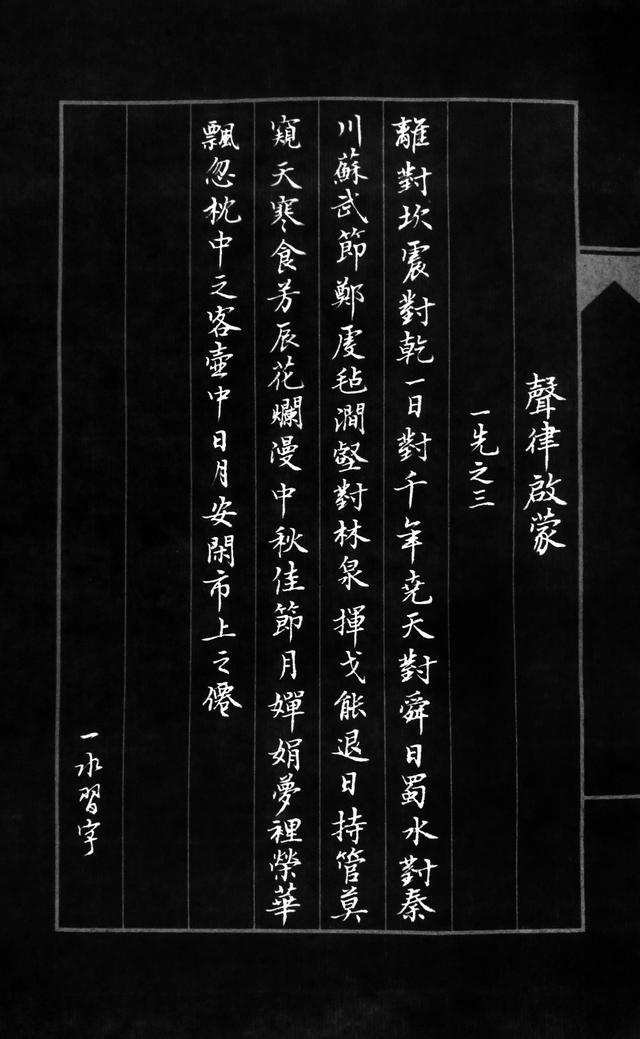 聲律啟蒙
一先之三
離對坎震對乾一日對千年堯天對舜日蜀水對秦
川蘇武節鄭虔毡澗壑對林泉揮戈能退日持管莫
窺天寒食芳辰花爛漫中秋佳節月嬋娟夢裡榮華
飄忽枕中之客壺中日月安閑市上之僊
一水習字